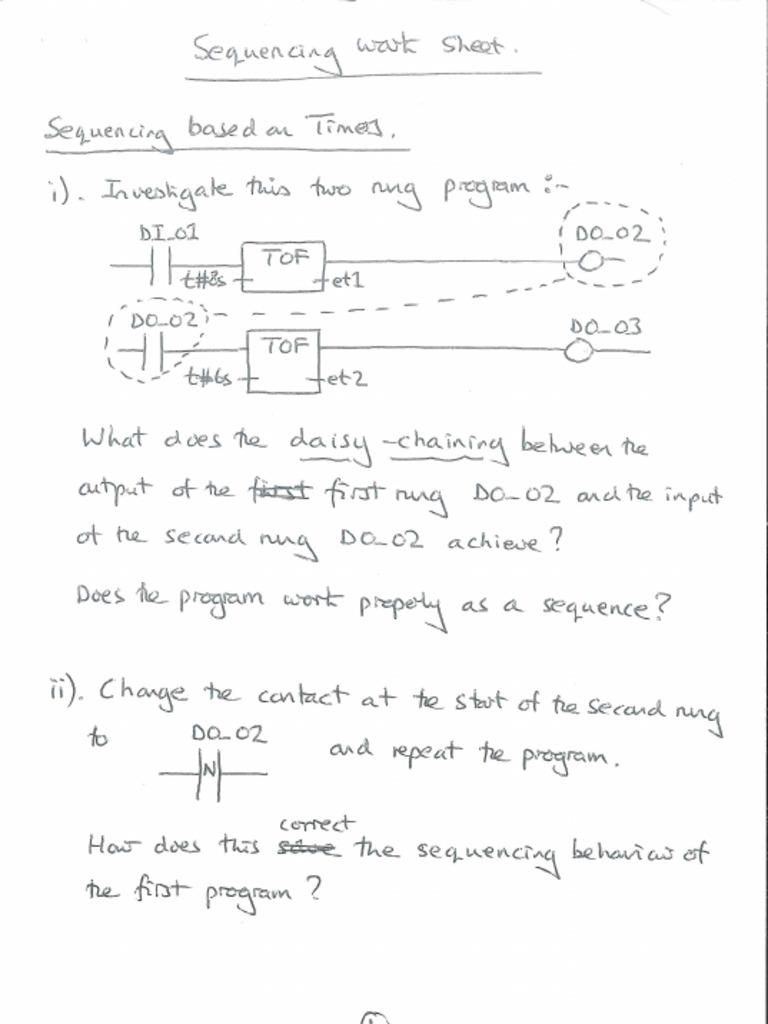 Sequencing work sheet.
Sequencing based on Times.
i). Investigate this two rung program :-
DI_01
DO_02
TOF
t#8s
et1
DO_02
DO_03
TOF
t#6s
et2
What does the daisy-chaining between the
output of the first first rung DO_02 and the input
of the second rung DO_02 achieve?
Does the program work properly as a sequence?
ii). Change the contact at the start of the second rung
to DO_02 and repeat the program.
N
correct
How does this solve the sequencing behaviour of
the first program?
1